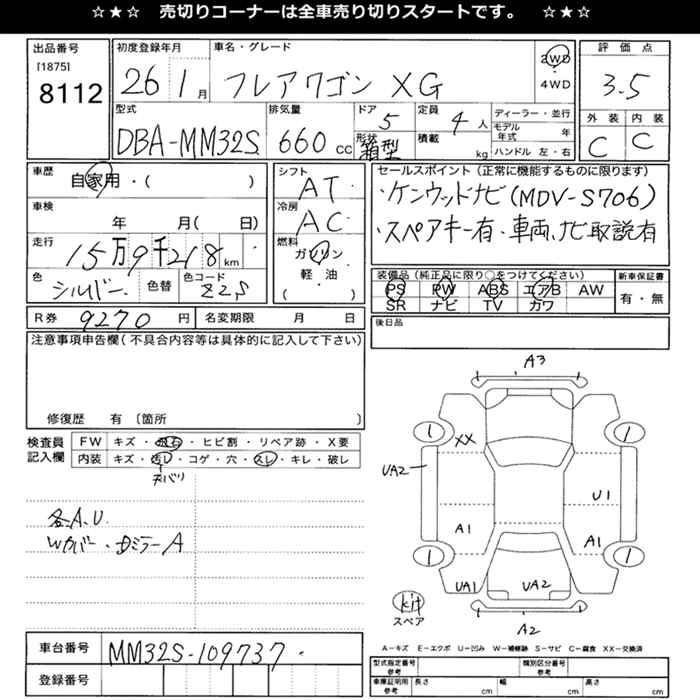 ☆★☆ 売切りコーナーは全車売り切りスタートです。 ☆★☆
出品番号 [1875] 8112
初度登録年月 26 1月
車名・グレード フレアワゴン XG
2WD ・ 4WD
評価点 3.5
外装 C 内装 C
型式 DBA-MM32S
排気量 660 cc
ドア 5
形状 箱型
定員 4 人
積載 kg
ディーラー・並行
モデル年式 年
ハンドル 左・右
車歴 自家用・( )
車検 年 月( 日)
走行 15万9千218 km
色 シルバー 色替 色コード Z2S
シフト AT
冷房 AC
燃料 ガソリン・軽油 ( )
セールスポイント(正常に機能するものに限ります)
・ケンウッドナビ(MDV-S706)
・スペアキー有・車両、ナビ取説有
装備品(純正品に限り○をつけてください)
PS PW ABS エアB AW
SR ナビ TV カワ
新車保証書 有・無
R券 9270 円
名変期限 月 日
後日品
注意事項申告欄(不具合内容等は具体的に記入して下さい)
修復歴 有 〔箇所 〕
検査員記入欄
FW キズ・飛石・ヒビ割・リペア跡・X要
内装 キズ・汚レ・コゲ・穴・スレ・キレ・破レ
各A.U.
Wカバー・
A
A3
1
1
XX
UA2
U1
A1
A1
1
1
UA1
UA2
kit
スペア
A2
A-キズ E-エクボ U-凹み W-補修跡 S-サビ C-腐食 XX-交換済
車台番号 MM32S-109737
登録番号
型式指定番号 参考
類別区分番号 参考
車庫証明用 参考 長さ cm 幅 cm 高さ cm